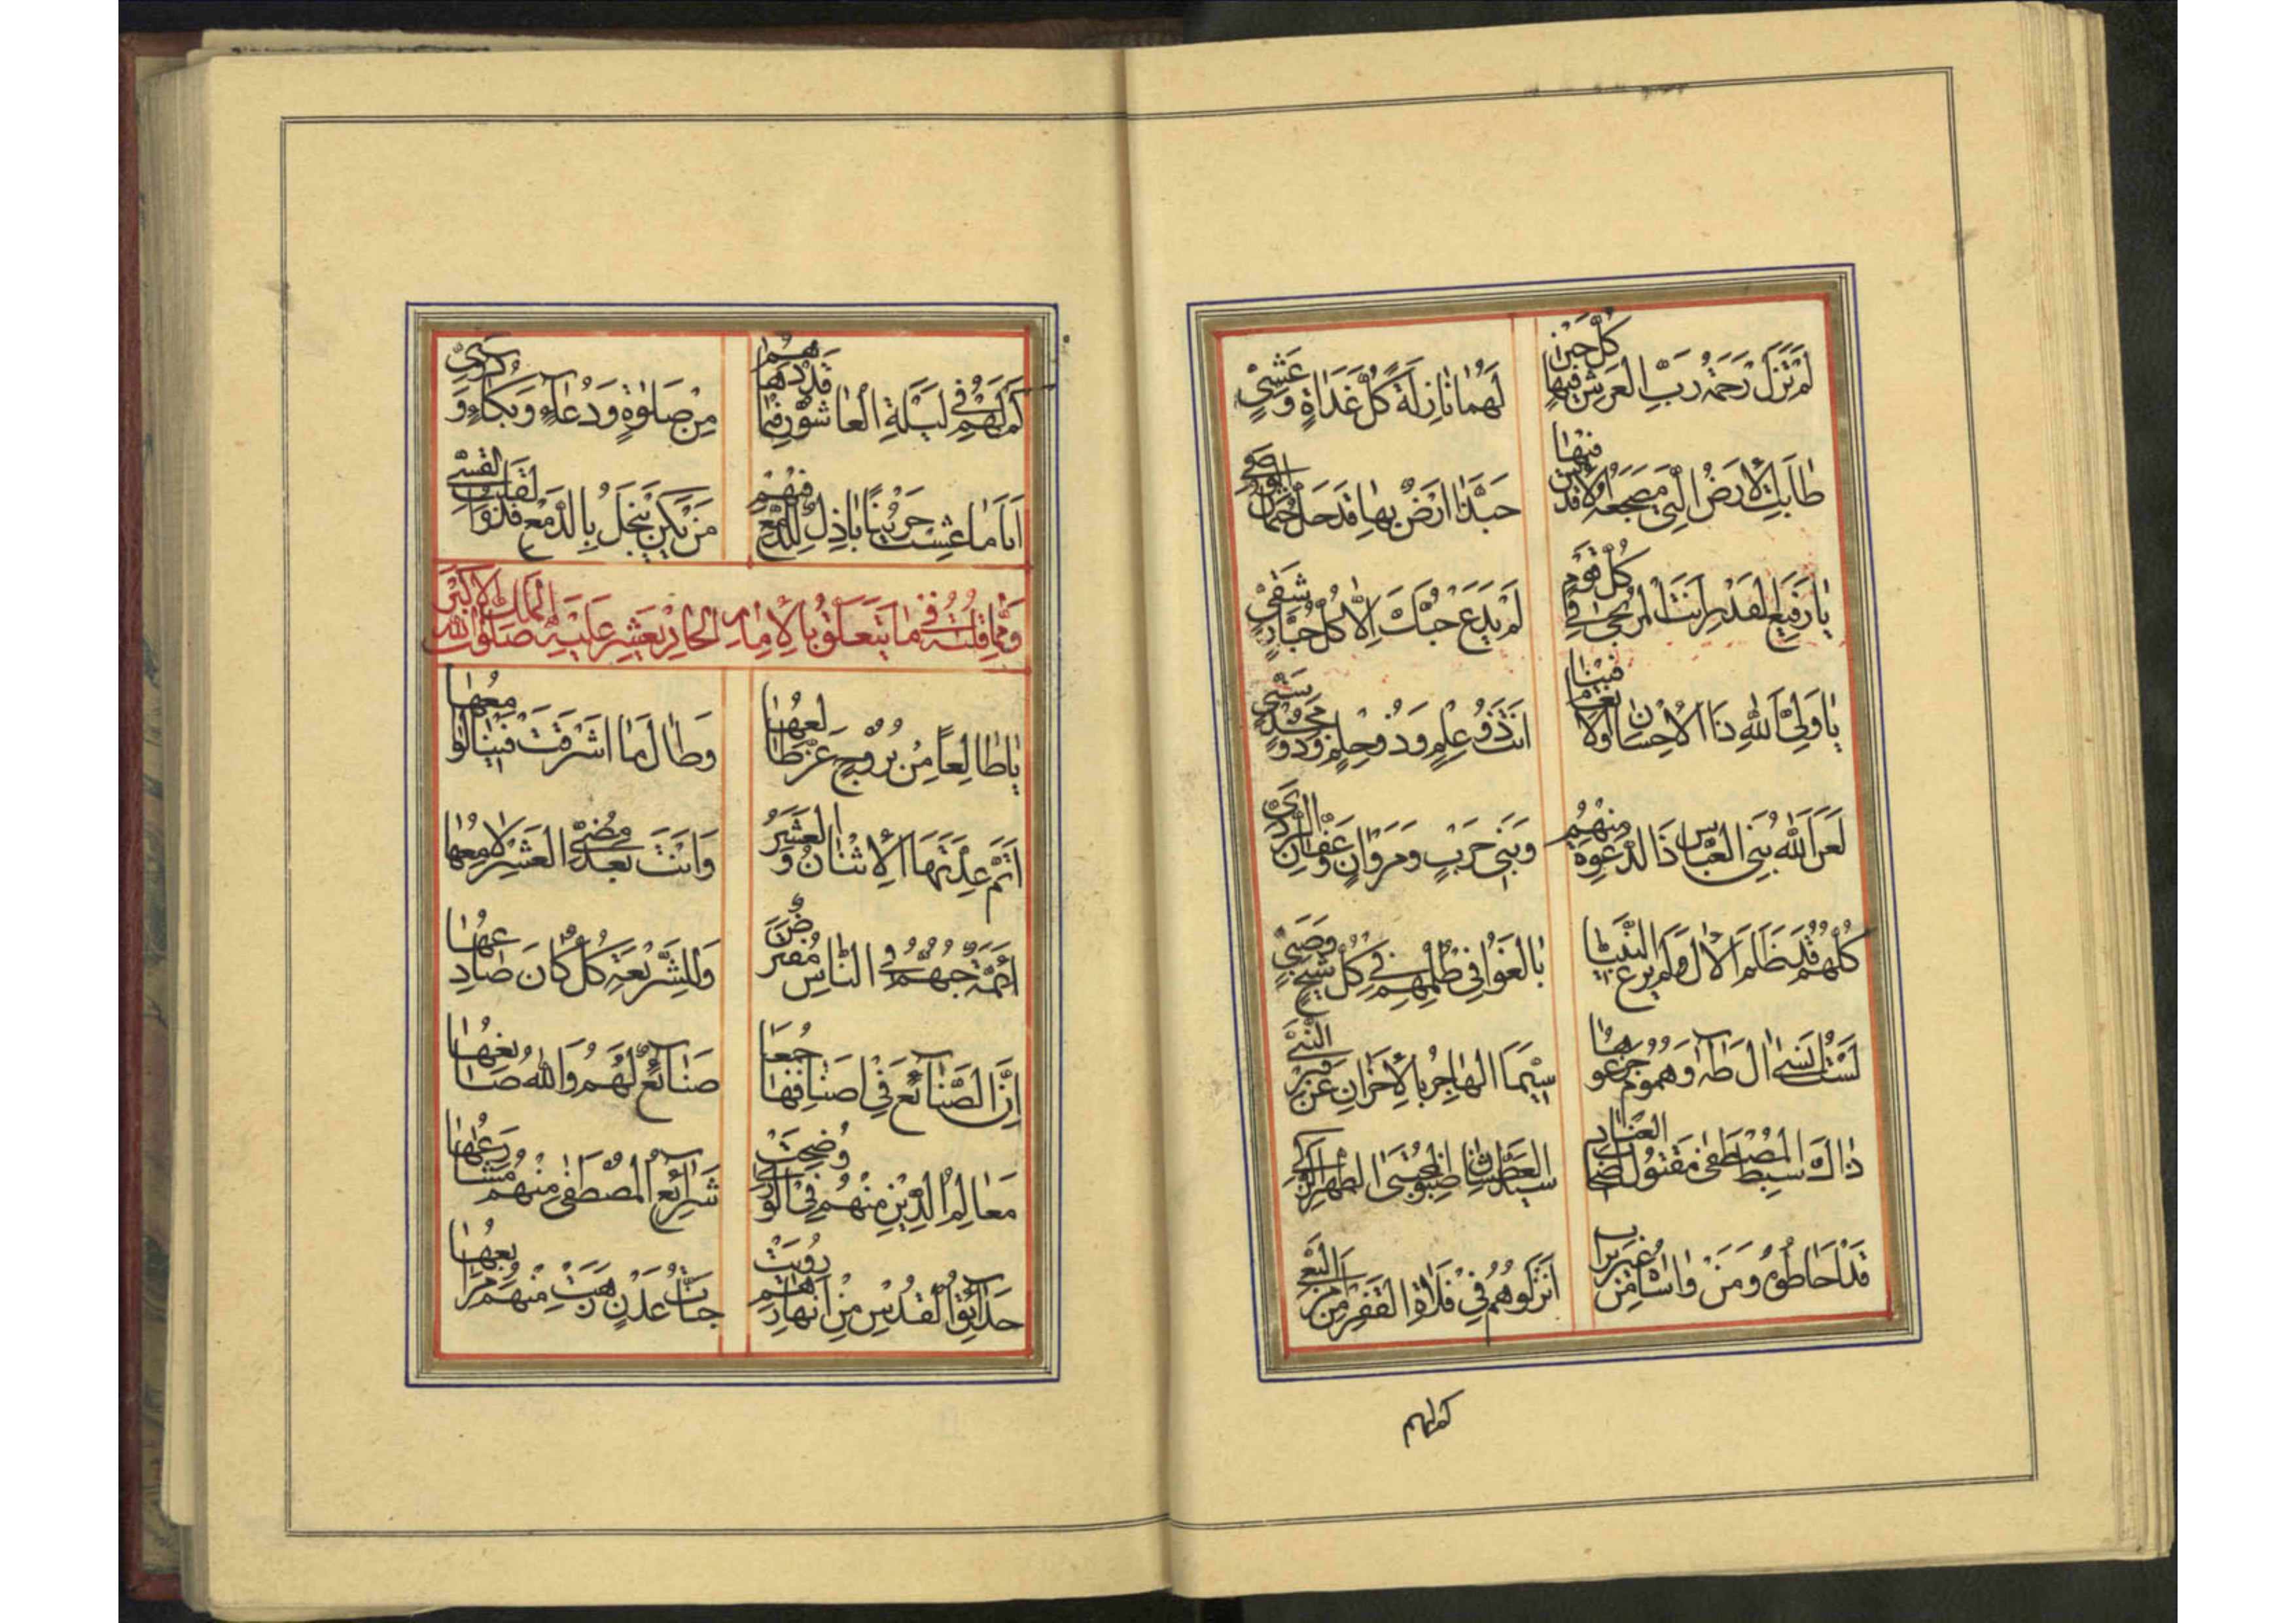 لَمْ تَزَلْ رَحْمَةُ رَبِّ العَرْشِ فيها كُلَّ حين لَهُما نازِلَةً كُلَّ غَداةٍ وَعَشِيٍّ
طابَتِ الأرضُ الَّتي مَضجَعُهُ الآن فيها حَبَّذا ارْضٌ بِها قَدْ حَلَّ
يا رَفيعَ القَدْرِ اَنْتَ المُرْتَجى في كُلِّ لَمْ يَدَعْ حُبَّكَ اِلّا كُلُّ جَبّارٍ شَقِيٍّ
يا وَلِيَّ اللهِ ذَا الاِحْسانِ اَوْلانا فينا اَنْتَ ذُو عِلْمٍ وَذُو حِلْمٍ وَذُو مَجْدٍ
لَعَنَ اللهُ بَنِي العَبّاسِ ذَا الدَّعْوَةِ مِنْهُمْ وَبَني حَرْبٍ وَمَرْوانٍ وَعَفّان
كُلُّهُمْ قَدْ ظَلَمَ الآلَ وَلَمْ يَرْعَ النَّبِيّا بالَغُوا في ظُلْمِهِمْ في كُلِّ شَيْخٍ وَصَبِيٍّ
لَسْتُ اَنْسى آلَ طٰهٰ وَهُمُومٌ سِيَّمَا الهاجِرُ بِالاَحْزانِ عَنْ قَبْرِ النَّبِيِّ
ذاكَ سِبْطُ المُصْطَفى مَقْتُولُ العَطْشانِ مُجْتَبَى الطُّهْرِ
قَدْ اَحاطُوهُ وَمَنْ واساهُ مِنْ اَنْزَلُوهُمْ في فَلاةِ القَفْرِ مِنْ
كم لهم
كَمْ لَهُمْ في لَيْلَةِ العاشُورِ مِنْ صَلوةٍ وَدُعاءٍ وَبُكاءٍ وَ
اَنَا ما عِشْتُ حَزينًا باذِلٌ لِلدَّمْعِ فيهِمْ مَنْ يَكُنْ يَبْخَلُ بِالدَّمْعِ
وَمِمّا قُلْتُهُ في ما يَتَعَلَّقُ بِالاِمامِ الحادِيعَشَر عَلَيْهِ صَلَواتُ اللهِ المَلِكِ الاَكْبَرِ
يا طالِعاً مِنْ بُرُوجٍ عَزَّ طالِعُها وَطالَ ما اَشْرَقَتْ فينا لَوامِعُها
اَتَمَّ عِدَّتَها الاِثْنانُ وَالعَشَرُ وَاَنْتَ بَعْدَ مُضِيِّ العَشْرِ لامِعُها
اَئِمَّةٌ حُبُّهُمْ في النّاسِ مُفْتَرَضٌ وَلِلشَّريعَةِ كُلٌّ كانَ صادِعُها
اِنَّ الصَّنائِعَ في اَصْنافِها جُمَعا صَنائِعٌ لَهُمْ وَاللهُ صانِعُها
مَعالِمُ الدّينِ مِنْهُمْ فِي الوَرى وَضَحَتْ شَرائِعُ المُصْطَفى مِنْهُمْ مَشارِعُها
حَدائِقُ القُدْسِ مِنْ اَنْهارِهِمْ رُوِيَتْ جَنّاتُ عَدْنٍ زَهَتْ مِنْهُمْ مَرابِعُها